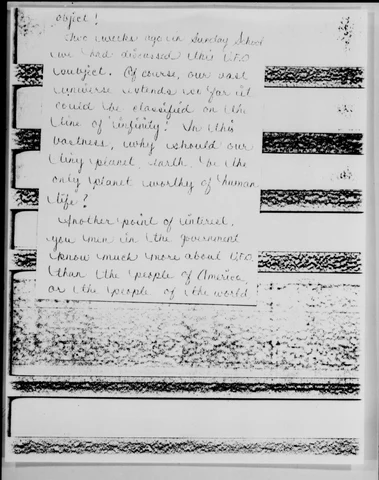 object!
Two weeks ago in Sunday School
we had discussed this U.F.O
subject. Of course, our vast
universe extends so far it
could be classified on the
line of infinity! In this
vastness, why should our
tiny planet, earth, be the
only planet worthy of human
life?
Another point of interest,
you men in the government
know much more about U.F.O.
than the people of America,
or the people of the world